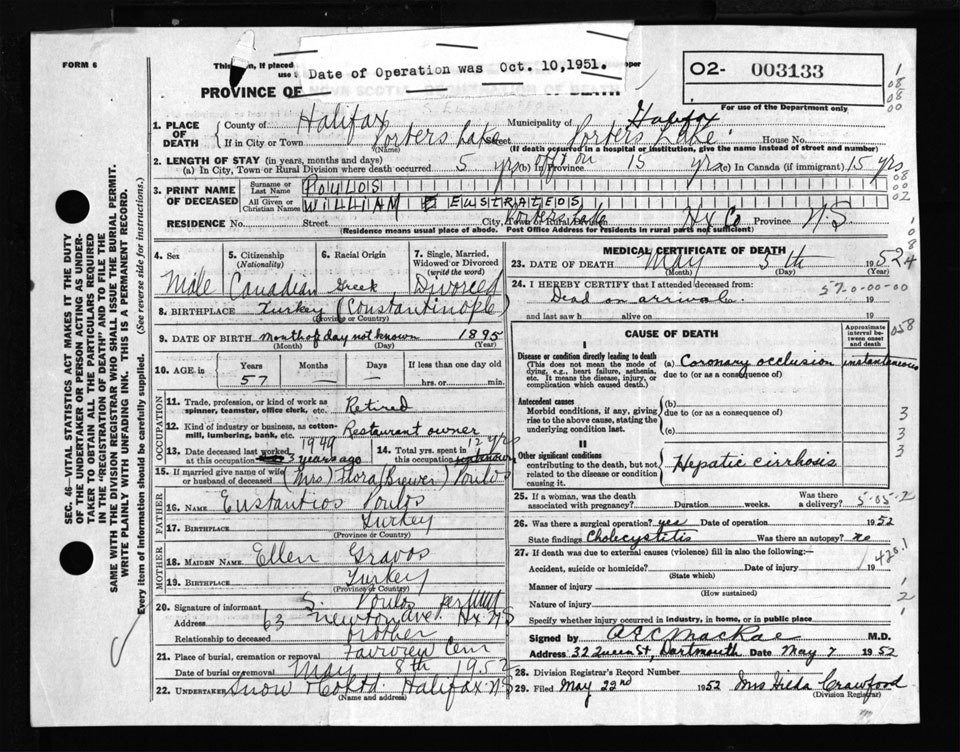 FORM 6
Date of Operation was Oct. 10, 1951.
PROVINCE OF
OF DEATH
O2- 003133
For use of the Department only
1. PLACE OF DEATH
County of Halifax Municipality of Halifax
If in City or Town Porters Lake Street Porters Lake House No.
(Name) (If death occurred in a hospital or institution, give the name instead of street and number)
2. LENGTH OF STAY (in years, months and days)
(a) In City, Town or Rural Division where death occurred 5 yrs (b) In Province off & on 15 yrs (c) In Canada (if immigrant) 15 yrs
3. PRINT NAME OF DECEASED
Surname or Last Name POULOS
All Given or Christian Names WILLIAM EUSTRATEOS
RESIDENCE No. Street City, Town or Rural Division Porters Lake Hx Co Province N S
(Residence means usual place of abode. Post Office Address for residents in rural parts not sufficient)
4. Sex Male
5. Citizenship (Nationality) Canadian
6. Racial Origin Greek
7. Single, Married, Widowed or Divorced (write the word) Divorced
8. BIRTHPLACE Turkey (Constantinople)
(Province or Country)
9. DATE OF BIRTH Month of day not known 1895
(Month) (Day) (Year)
10. AGE in Years 57 Months Days If less than one day old
hrs. or min.
OCCUPATION
11. Trade, profession, or kind of work as spinner, teamster, office clerk, etc. Retired
12. Kind of industry or business, as cotton-mill, lumbering, bank, etc. Restaurant owner
13. Date deceased last worked at this occupation 1949 3 years ago
14. Total yrs. spent in this occupation 12 yrs
15. If married give name of wife or husband of deceased (Mrs) Flora (Brewer) Poulos
FATHER
16. NAME Eustantios Poulos
17. BIRTHPLACE Turkey
(Province or Country)
MOTHER
18. MAIDEN NAME Ellen Gravos
19. BIRTHPLACE Turkey
(Province or Country)
20. Signature of informant S. Poulos per
Address 63 Newton Ave. Hx. N S
Relationship to deceased brother
21. Place of burial, cremation or removal Fairview Cem
Date of burial or removal May 8th 1952
22. UNDERTAKER Snow & Co Ltd. Halifax N S
(Name and address)
MEDICAL CERTIFICATE OF DEATH
23. DATE OF DEATH May 5th 1952
(Month) (Day) (Year)
24. I HEREBY CERTIFY that I attended deceased from: 57-0-00-00
Dead on arrival 19
and last saw h alive on 19
CAUSE OF DEATH
Approximate interval between onset and death
I
Disease or condition directly leading to death (This does not mean the mode of dying, e.g., heart failure, asthenia, etc. It means the disease, injury, or complication which caused death.)
(a) Coronary occlusion instantaneous
due to (or as a consequence of)
Antecedent causes
Morbid conditions, if any, giving rise to the above cause, stating the underlying condition last.
(b)
due to (or as a consequence of)
(c)
II
Other significant conditions contributing to the death, but not related to the disease or condition causing it.
Hepatic cirrhosis
25. If a woman, was the death associated with pregnancy? Duration weeks. Was there a delivery? 5-05-2
26. Was there a surgical operation? yes Date of operation 1952
State findings Cholecystitis Was there an autopsy? no
27. If death was due to external causes (violence) fill in also the following:—
Accident, suicide or homicide? Date of injury 19 420.1
(State which)
Manner of injury
(How sustained)
Nature of injury
Specify whether injury occurred in industry, in home, or in public place
Signed by A E C MacRae M.D.
Address 32 Queen St, Dartmouth Date May 7 1952
28. Division Registrar's Record Number
29. Filed May 22nd 1952 Mrs Hilda Crawford
(Division Registrar)
SEC. 46—VITAL STATISTICS ACT MAKES IT THE DUTY OF THE UNDERTAKER OR PERSON ACTING AS UNDERTAKER TO OBTAIN ALL THE PARTICULARS REQUIRED IN THE "REGISTRATION OF DEATH" AND TO FILE THE SAME WITH THE DIVISION REGISTRAR WHO SHALL ISSUE THE BURIAL PERMIT.
WRITE PLAINLY WITH UNFADING INK. THIS IS A PERMANENT RECORD.
Every item of information should be carefully supplied. (See reverse side for instructions.)